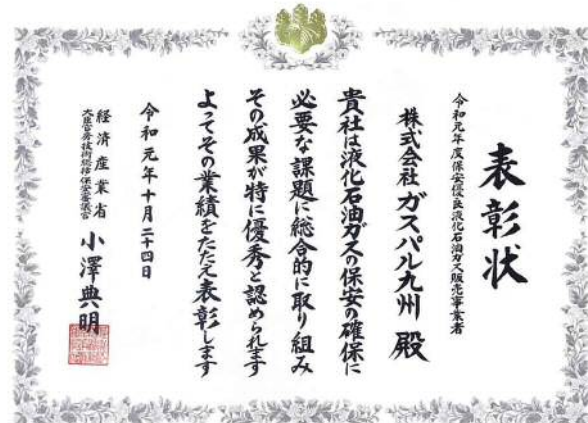 表彰状
令和元年度保安優良液化石油ガス販売事業者
株式会社 ガスパル九州 殿
貴社は液化石油ガスの保安の確保に
必要な課題に総合的に取り組み
その成果が特に優秀と認められます
よってその業績をたたえ表彰します
令和元年十月二十四日
経済産業省
大臣官房技術総括保安審議官
小澤典明